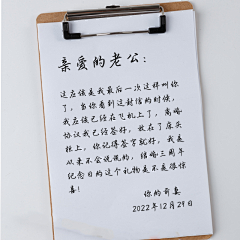 亲爱的老公：
这应该是我最后一次这样叫你
了，当你看到这封信的时候，
我应该已经在飞机上了，离婚
协议我已经签好，放在了床头
柜上，你记得签字就好，我是
从来不会说谎的，结婚三周年
纪念日的这个礼物是不是很惊
喜！
你的前妻
2022年12月29日